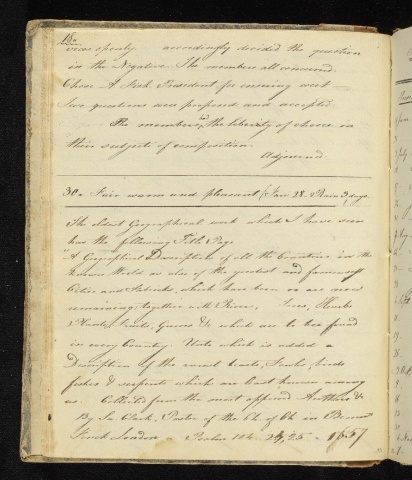 180
viva openly. accordingly decided the question
in the Negative. The members all concurred.
Chose A Peek President for ensuing week —
Two questions were proposed and accepted
The members had the liberty of choice in
their subjects of composition.
Adjourned
30. Fair warm and pleasant Fair 28. Rain 3 days
The oldest Geographical work which I have seen
has the following Title Page
"A Geographical Description of all the Countries in the
known World as also of the greatest and famousest
Cities and Fabricks, which have been or are now
remaining; together with Rivers, Trees, Herbs
Plants, Fruits, Gums &c which are to be found
in every Country. Unto which is added a
Description of the rarest beasts, Fowls, birds
fishes & serpents which are least known among
us. Collected from the most approved Authors &c
By Sa. Clark, Pastor of the Ch of Ch in Bennet
Finck London. Psalms 104. 24, 25 - 1657